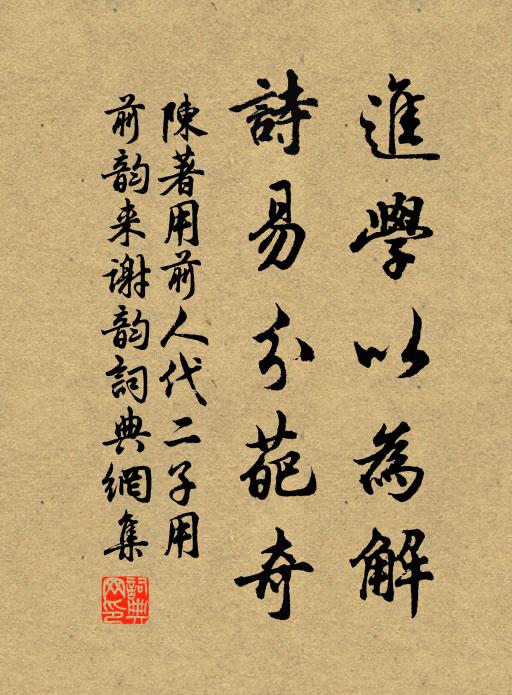 進學以為解
詩易分葩奇
陳著用前人代二子用
前韵来謝韵詞典網集
詞典网印